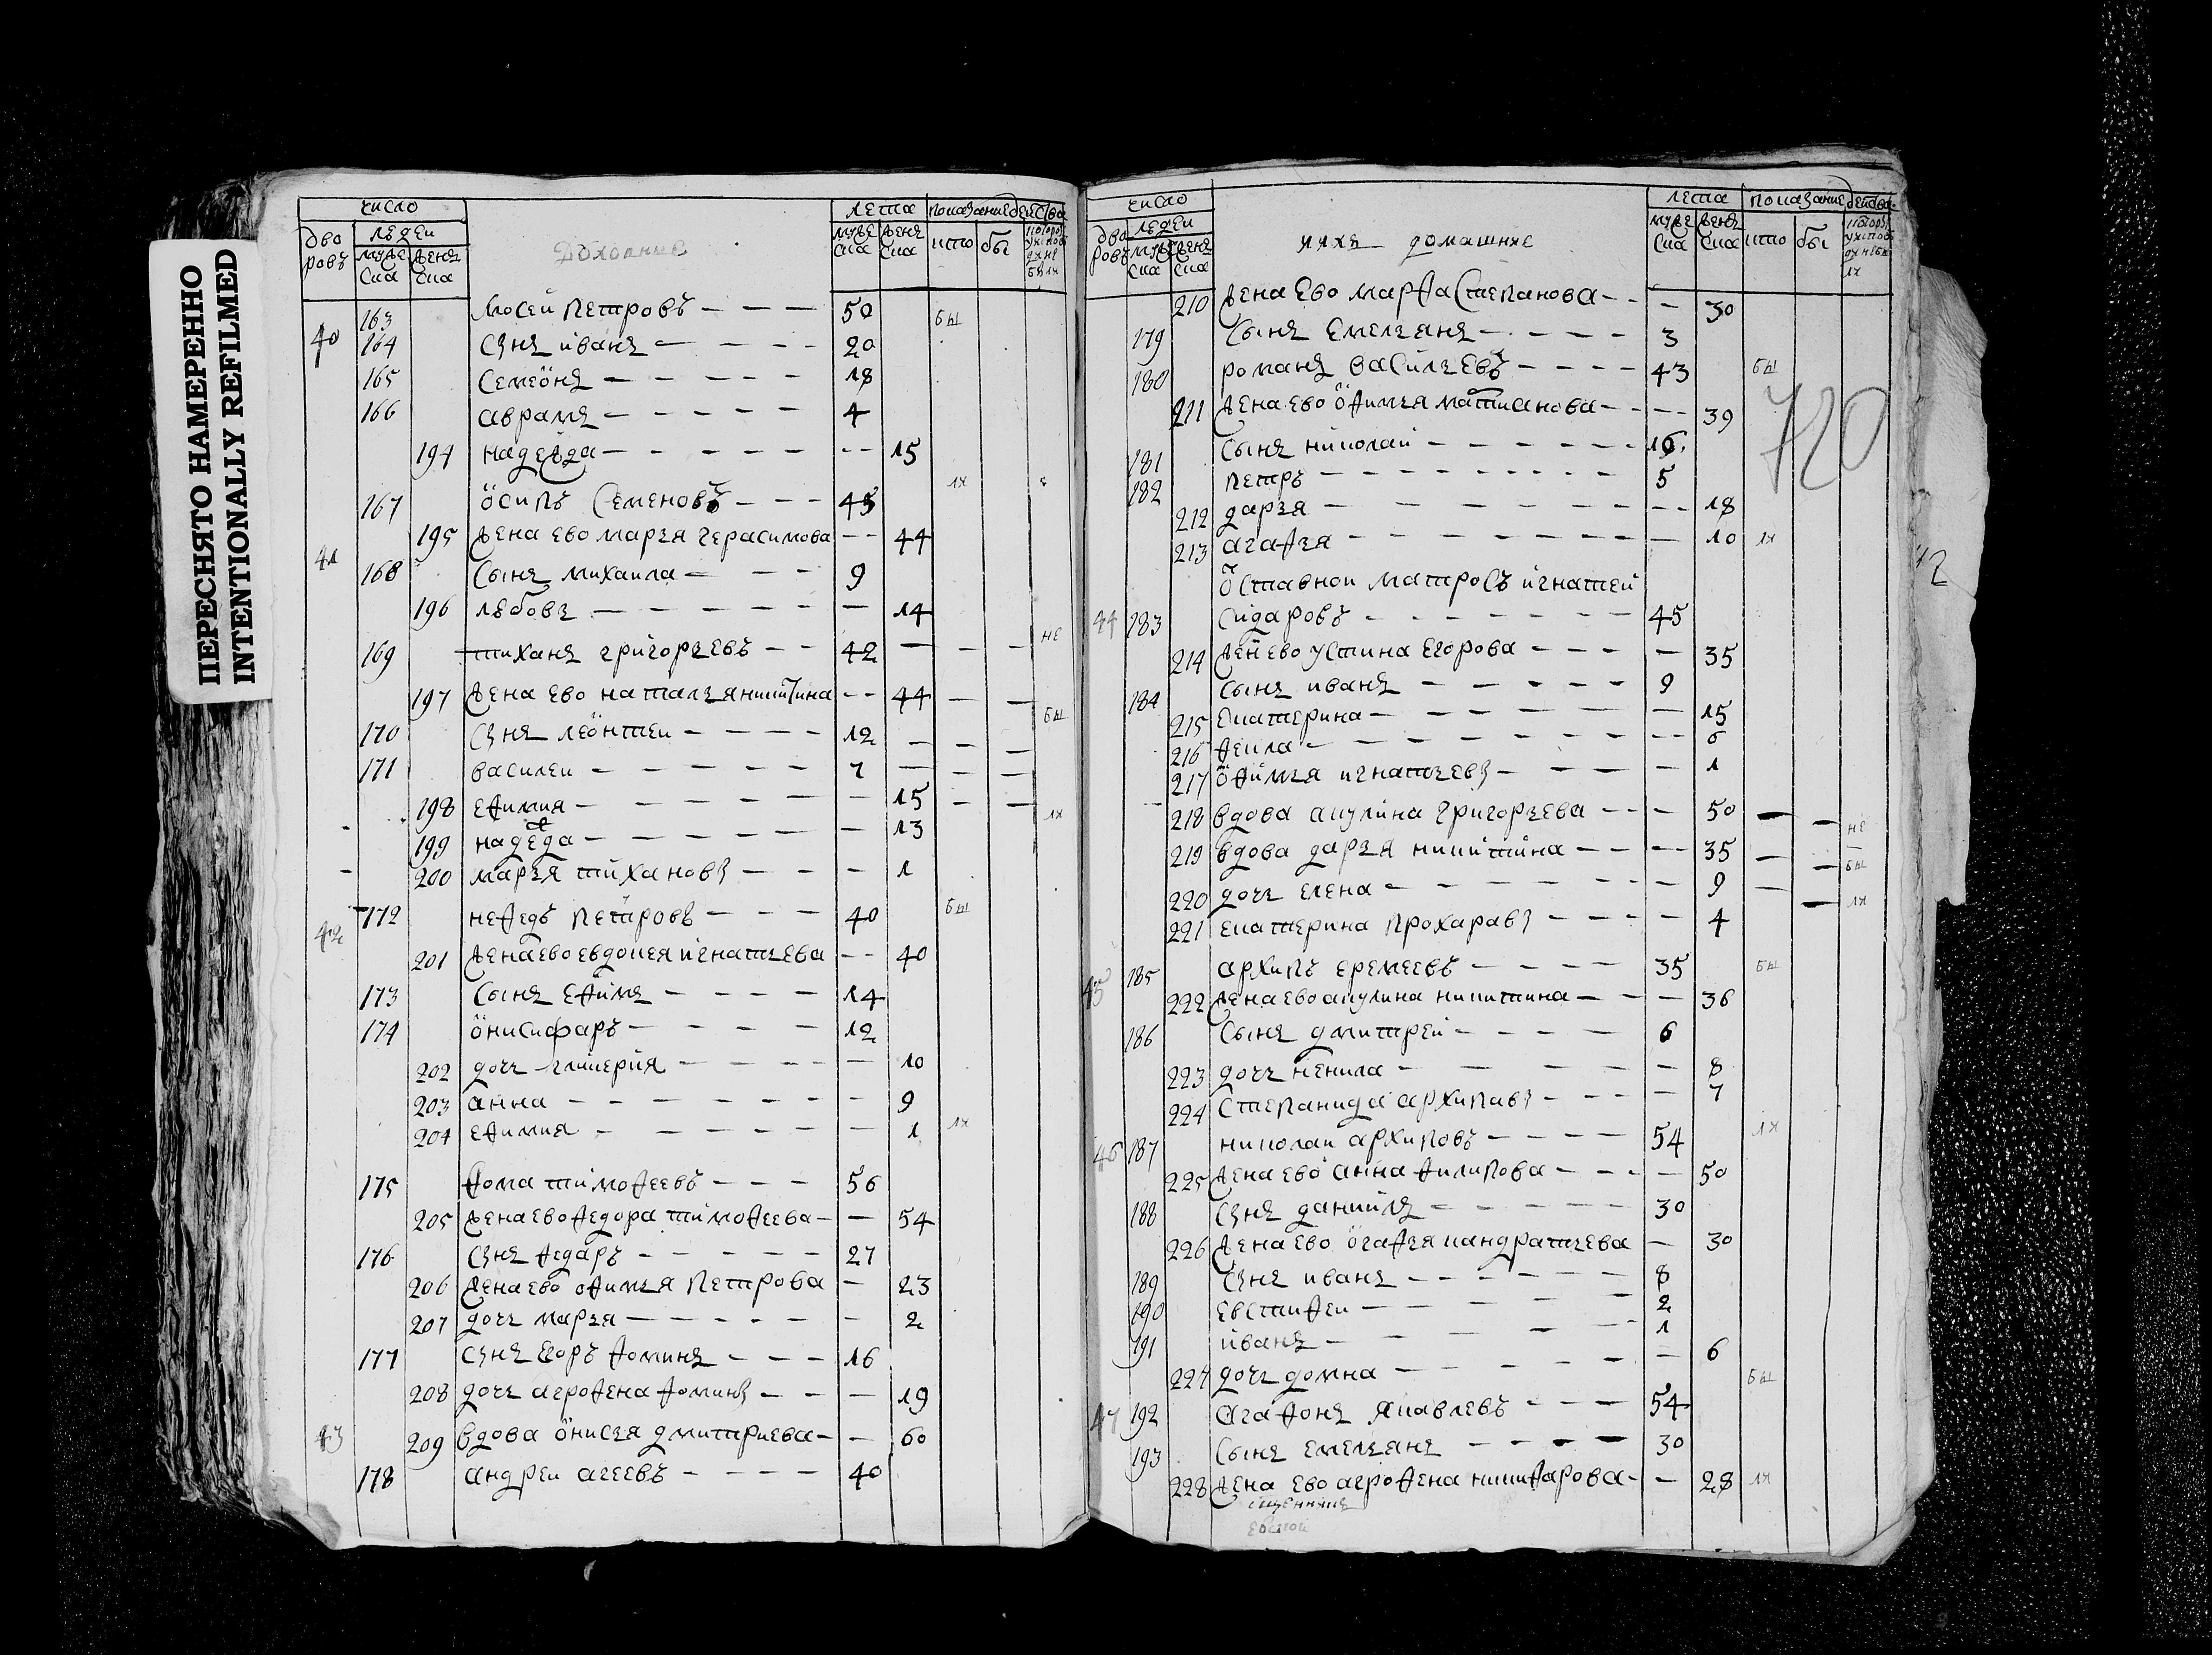 ПЕРЕСНЯТО НАМЕРЕННО
INTENTIONALLY REFILMED
число лета показание действа
дворовъ людеи
мужеска женска мужеска женска кто бы
Духовные
163 Мосеи Петровъ 50 бы
40 164 Сынъ иванъ 20
165 Семеонъ 18
166 аврамъ 4
194 надежда 15
167 осипъ Семеновъ 45 лх
195 жена ево марья герасимова 44
41 168 Сынъ михаила 9
196 любовь 14
169 тиханъ григорьевъ 42 не
197 жена ево наталья никитина 44
170 Сынъ леонтеи 12 бы
171 василеи 7
198 ефимия 15
199 надежда 13 лх
200 марья тиханов 1
172 нефедъ Петровъ 40 бы
42 201 жена ево евдокея игнатьева 40
173 Сынъ ефимъ 14
174 онисифаръ 12
202 дочь гликерия 10
203 анна 9
204 ефимия 1 лх
175 фома тимофеевъ 56
205 жена ево федора тимофеева 54
176 Сынъ федаръ 27
206 жена ево офимья Петрова 23
207 дочь марья 2
177 Сынъ егоръ фоминъ 16
208 дочь агрофена фомин 19
43 209 вдова онисья дмитриева 60
178 андреи агеевъ 40
число лета показание действа
дворовъ людеи
мужеска женска мужеска женска кто бы
ихъ домашние
210 жена ево марфа Степанова 30
179 Сынъ емельянъ 3
180 романъ васильевъ 43 бы
720
211 жена ево офимья 39
181 Сынъ николаи 16
182 петръ 5
212 дарья 18
213 агафья 10 лх
отставнои матросъ игнатеи
44 183 Сидаровъ 45
214 жена ево устина егорова 35
184 Сынъ иванъ 9
215 екатерина 15
216 фекла 6
217 офимья игнатьев 1
218 вдова акулина григорьева 50 не
219 вдова дарья никитина 35 бы
220 дочь елена 9 лх
221 екатерина Прохарав 4
45 185 архипъ еремеевъ 35 бы
222 жена ево акулина никитина 36
186 Сынъ дмитреи 6
223 дочь ненила 8
224 Степанида архипав 7
46 187 николаи архиповъ 54 лх
225 жена ево анна филипова 50
188 Сынъ даниилъ 30
226 жена ево огафья кандратьева 30
189 Сынъ иванъ 8
190 евстифеи 2
191 иванъ 1
227 дочь домна 6
47 192 агафонъ яковлевъ 54 бы
193 Сынъ емельянъ 30
228 жена ево агрофена никифарова 28 лх